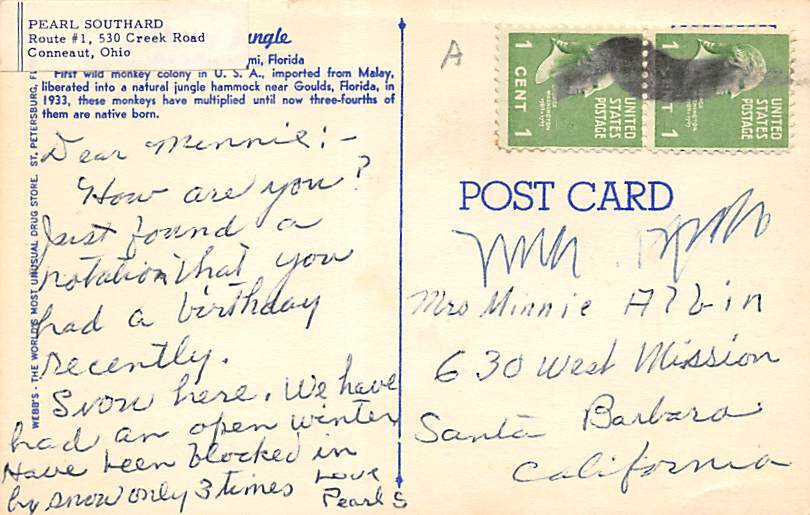 PEARL SOUTHARD
Route #1, 530 Creek Road
Conneaut, Ohio
ngle
mi, Florida
First wild monkey colony in U. S. A., imported from Malay,
liberated into a natural jungle hammock near Goulds, Florida, in
1933, these monkeys have multiplied until now three-fourths of
them are native born.
WEBB'S - THE WORLD'S MOST UNUSUAL DRUG STORE. ST. PETERSBURG, FL
Dear Minnie:-
How are you?
Just found a
notation that you
had a birthday
recently.
Snow here. We have
had an open winter
Have been blocked in
by snow only 3 times
Love
Pearl S
A
1 CENT 1
UNITED
STATES
POSTAGE
1
T 1
UNITED
STATES
POSTAGE
POST CARD
Mrs Minnie Albin
630 West Mission
Santa Barbara
California